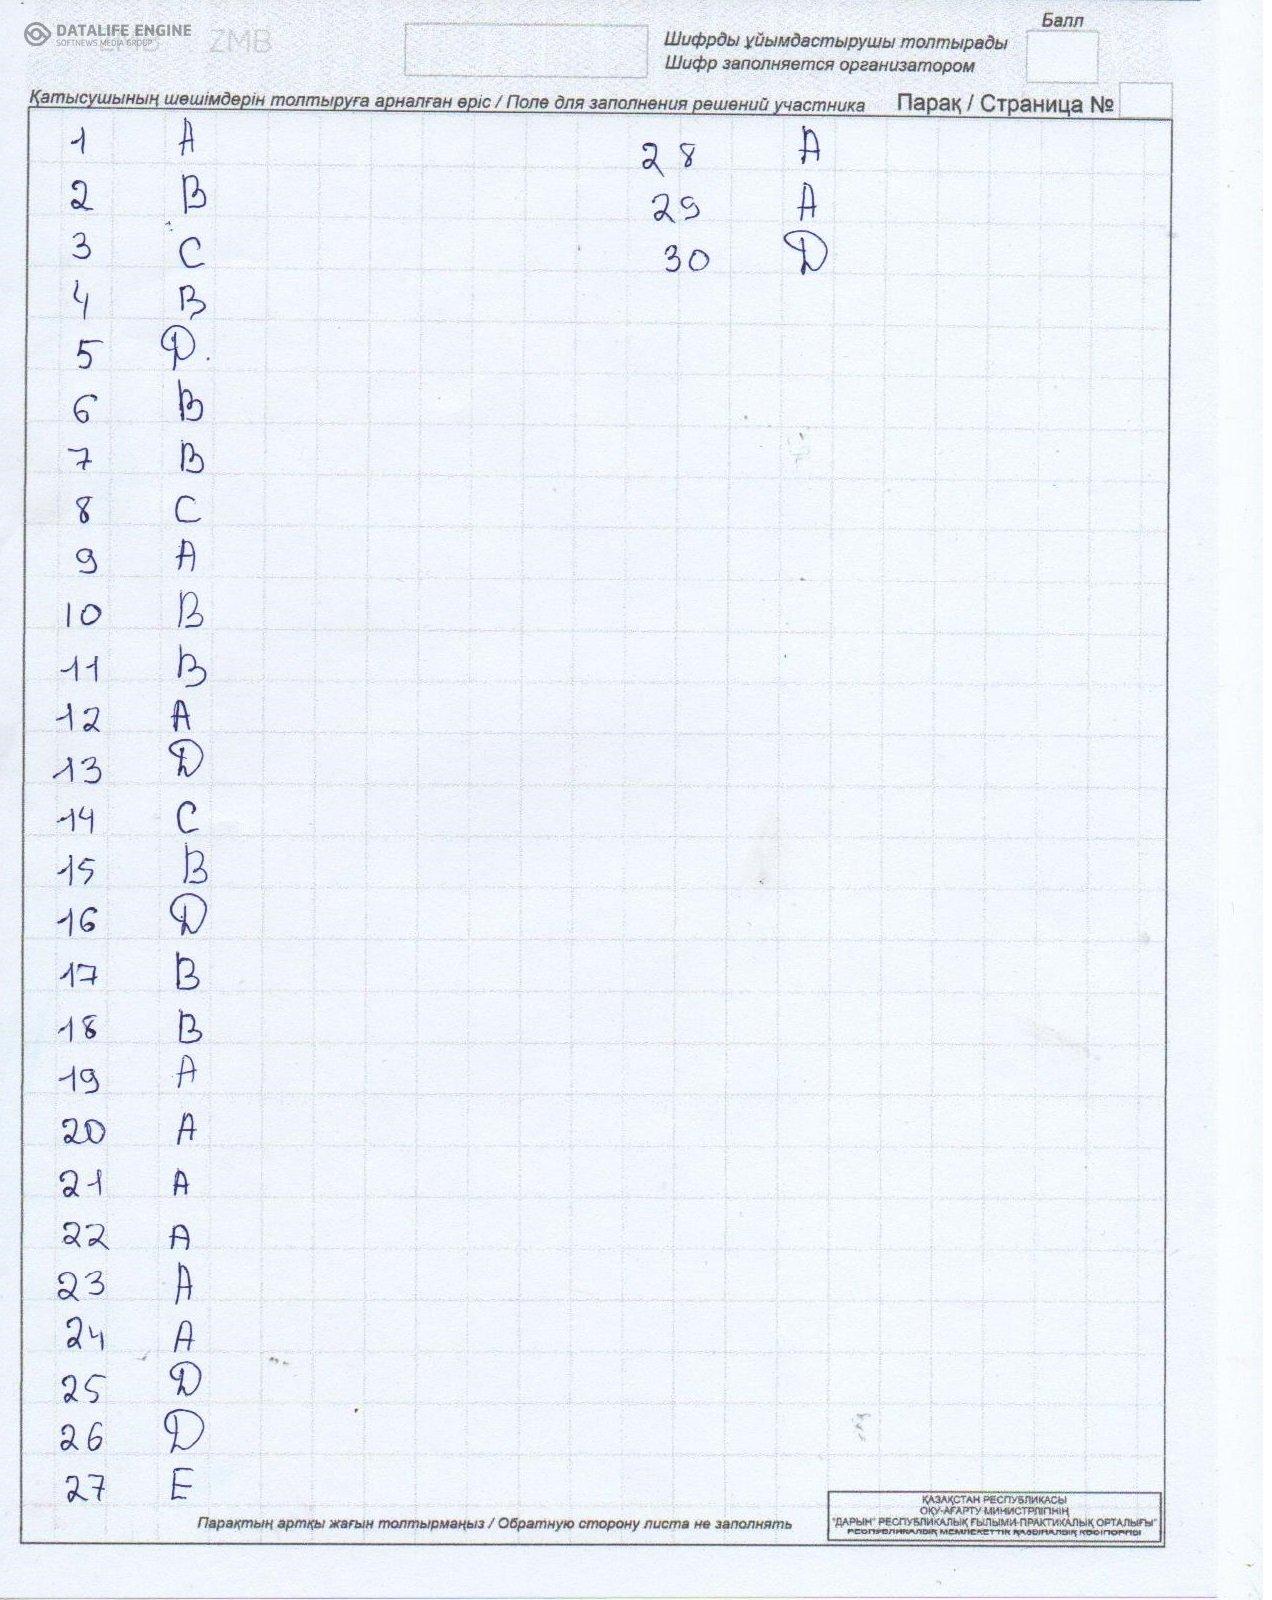 DATALIFE ENGINE
SOFTNEWS MEDIA GROUP
ZMB
Балл
Шифрды ұйымдастырушы толтырады
Шифр заполняется организатором
Қатысушының шешімдерін толтыруға арналған өріс / Поле для заполнения решений участника Парақ / Страница №
1 A
2 B
3 C
4 B
5 D.
6 B
7 B
8 C
9 A
10 B
11 B
12 A
13 D
14 C
15 B
16 D
17 B
18 B
19 A
20 A
21 A
22 A
23 A
24 A
25 D
26 D
27 E
28 A
29 A
30 D
Парақтың артқы жағын толтырмаңыз / Обратную сторону листа не заполнять
ҚАЗАҚСТАН РЕСПУБЛИКАСЫ
ОҚУ-АҒАРТУ МИНИСТРЛІГІНІҢ
"ДАРЫН" РЕСПУБЛИКАЛЫҚ ҒЫЛЫМИ-ПРАКТИКАЛЫҚ ОРТАЛЫҒЫ"
РЕСПУБЛИКАЛЫҚ МЕМЛЕКЕТТІК ҚАЗЫНАЛЫҚ КӘСІПОРНЫ